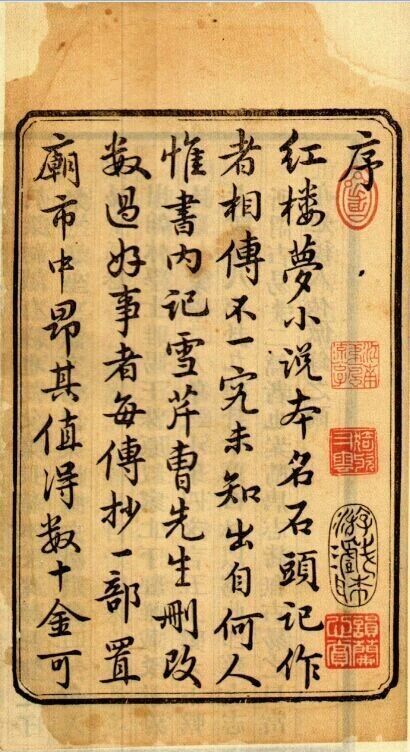 序
红楼夢小说本名石頭记作
者相傳不一究未知出自何人
惟書内记雪芹曹先生删改
数過好事者每傳抄一部置
廟市中昂其值得数十金可